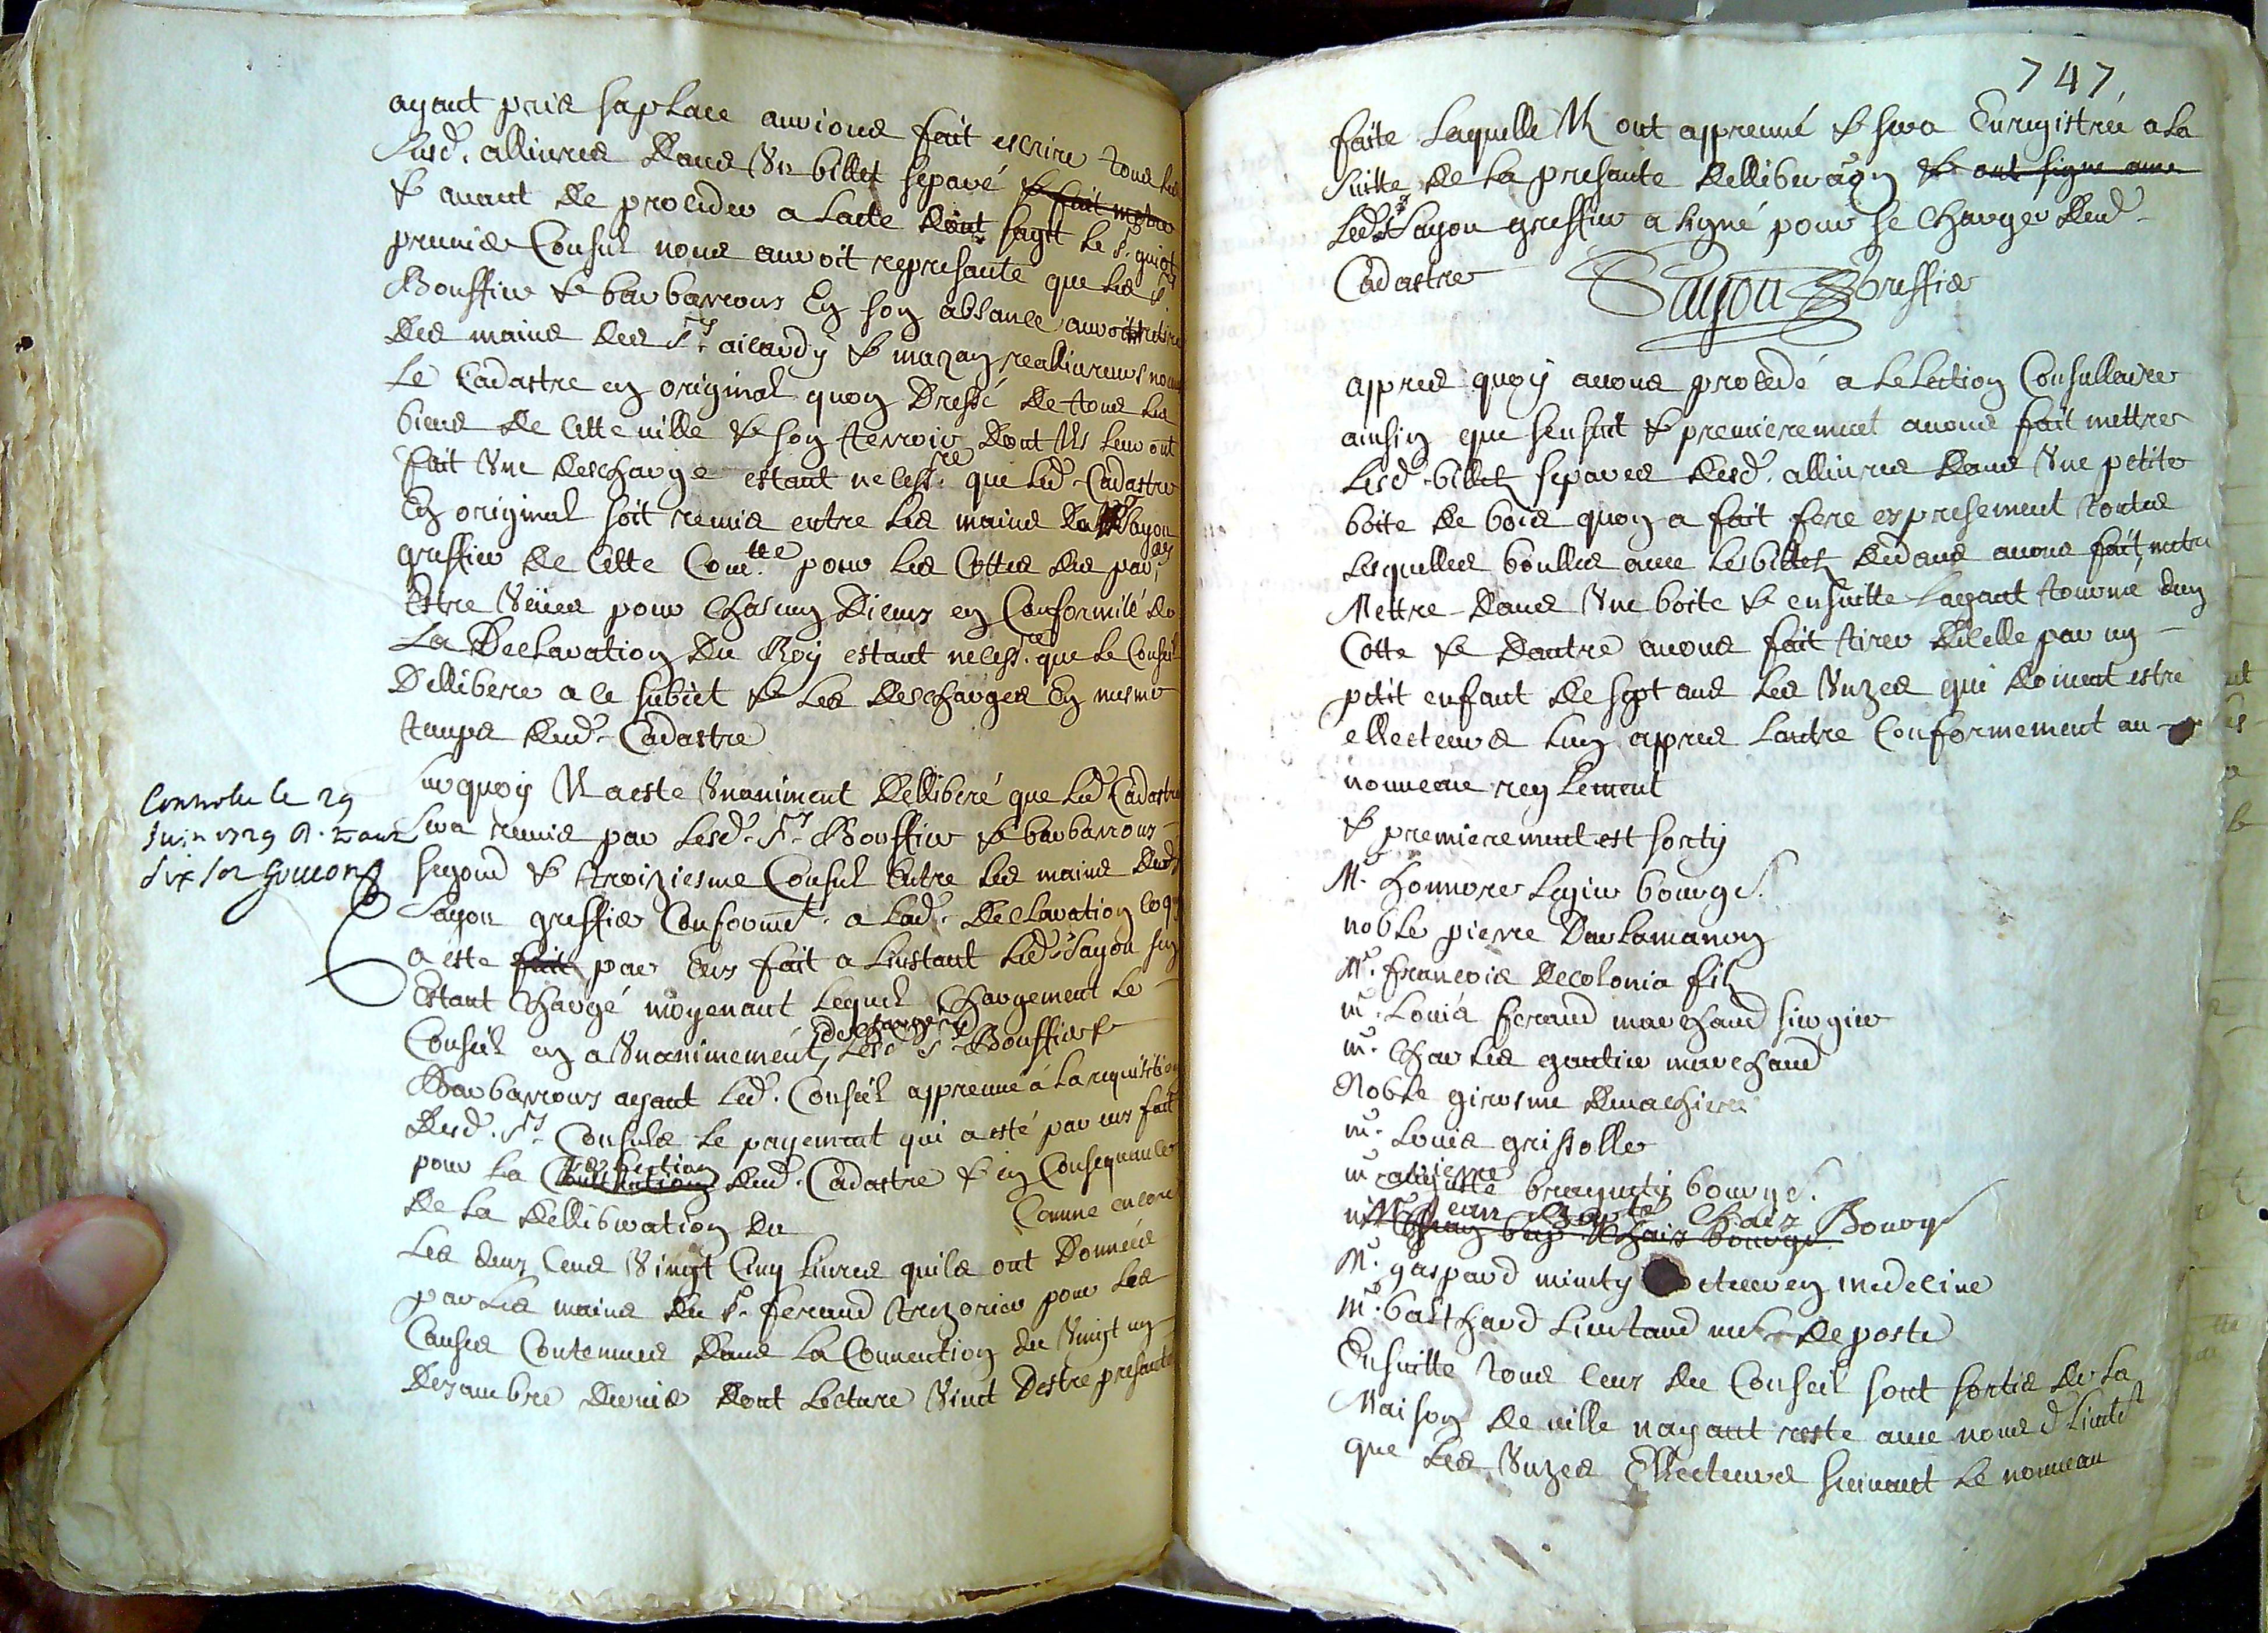 ayant pris sa place auvions fait escrire tous les
susd. allivres dans un billet separé & fait mettre
& avant de proceder a lacte dont sagit le sr. guiot
premier Consul nous auroit represante que les srs
Bouffier & barbarroux En son absance auroit retiré
des mains des srs. aicardy & mazan reallivreurs nouv
Le Cadastre en original quon Dressé de tous les
biens de cette ville & son terroir dont ils leur ont
fait une descharge estant necessre. que led. Cadastre
En original soit remis entre les mains de Sayon
greffier de cette Comtte pour les Cottes des par
Estre veües pour chascun Diceux en Conformité de
La Declaration du Roy estant necessre. que le Conseil
Dellibere a ce subiet & les descharges En mesme
temps dud. Cadastre
surquoy Il a este unaniment dellibéré que led. Cadastre
sera remis par lesd. srs. Bouffier & barbarroux
segond & troiziesme Consul Entre les mains dud
Sayon greffier Conformt. a lad. Declaration ce q
a este fait par Eux fait a linstant led. Sayon sen
Estant chargé moyenant lequel chargement le
Conseil en a unanimement deschargé lesd. srs Bouffier &
Barbarroux ayant led. Conseil appreuue a la requisition
desd. srs. Consuls le payement qui a esté par eux fait
pour la Confection dud. Cadastre & en Consequance
de la delliberation du Comme encore
Les deux Cens vingt Cinq livres quils ont Données
par les mains du sr. feraud trezorier pour les
Causes Contenues dans la Convention du vingt un
Dezambre dernier dont lecture vient Destre presante
Controlle le 29
Juin 1729 R. Tout
six sol
747
faite Laquelle Il ont appreuué & sera Enregistrée a la
suitte de la presante delliberaõn & ont signé avec
Led. Sayon greffier a signé pour se charger dud.
Cadastre Sayon Greffier
appres quoy avons procedé a lelection Consullaire
ainsin que sensuit & premierement avons fait mettre
Lesd. billetz separes desd. allivres dans une petite
boite de bois quon a fait fere expresement toutes
lesquelles boulles avec les billetz dedans avons fait mettre
Mettre dans une boite & ensuitte layant tourné dun
Cotte & dautre avons fait tirer dicelle par un
petit enfant de sept ans les unzes qui doivent estre
ellecteurs lun appres lautre Conformement au
nouveau reglement
& premierement est sorty
M. honnore Lagier bourgs.
noble pierre Darlamanon
Mr. francois decolonia filz
mr. Louis feraud marchand sirgier
mr. charles gautier marchand
Noble girosme demachieu
mr. Louis grisolle
m pierre braquety bourgs.
Mr Jean Bapte Chaix Bourgs
M. gaspard minuty cteur en medecine
mr. balthazard Lieutaud me de poste
Ensuitte tous ceux du Conseil sont sortis de la
Maison de ville nayant reste avec nous d. Lieutt
que les unzes Ellecteurs suivant le nouveau